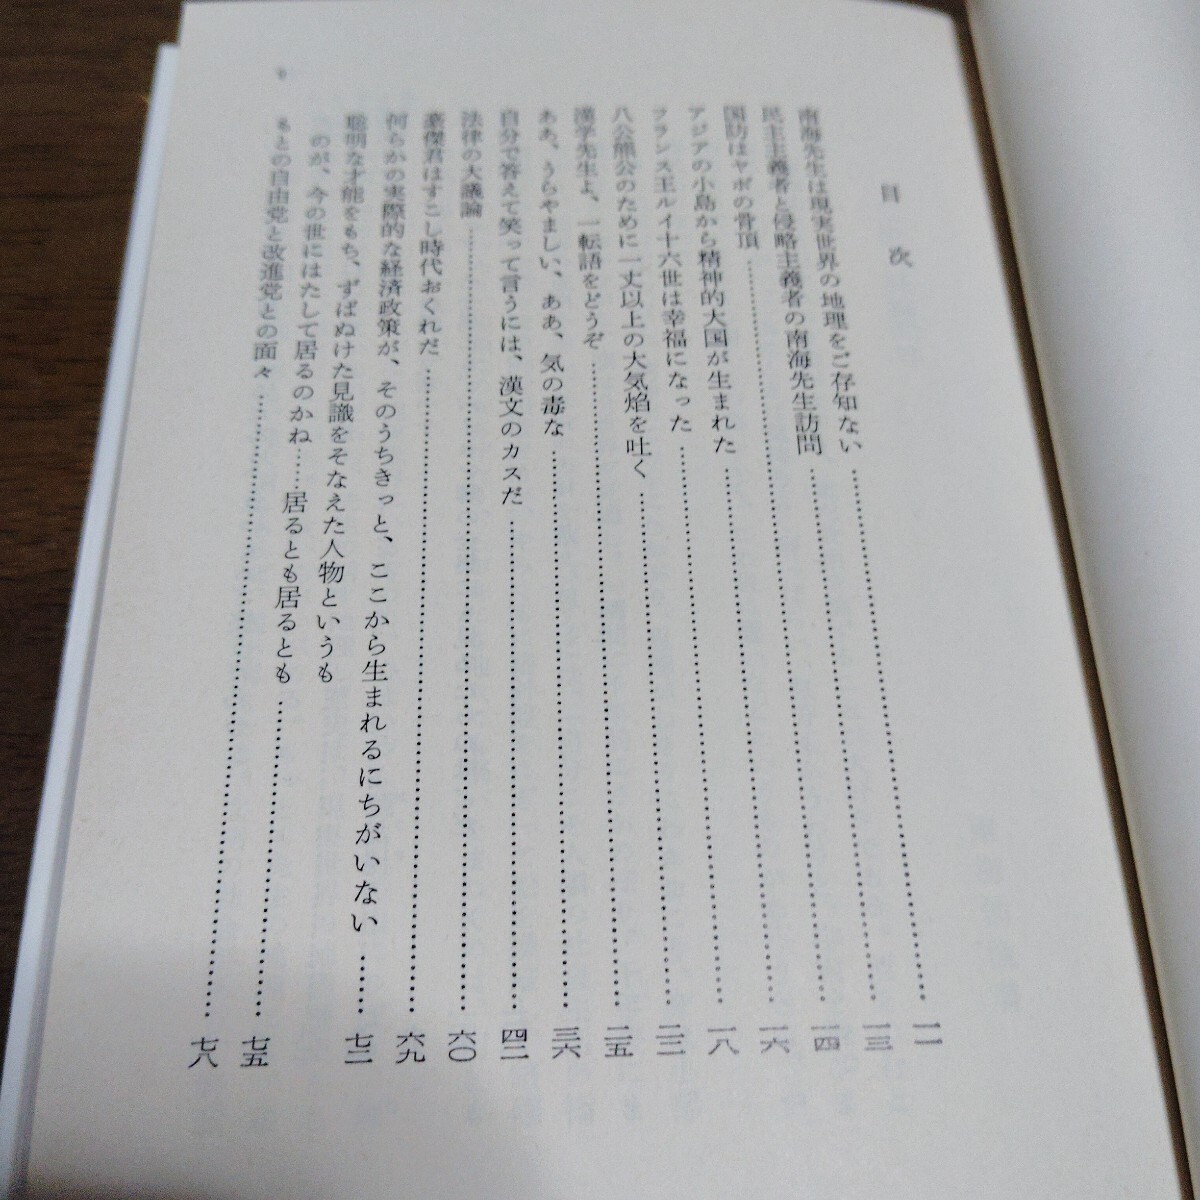 目次
南海先生は現実世界の地理をご存知ない……一一
民主主義者と侵略主義者の南海先生訪問……一三
国訪はヤボの骨頂……一四
アジアの小島から精神的大国が生まれた……一六
フランス王ルイ十六世は幸福になった……一八
八公熊公のために一丈以上の大気焰を吐く……二二
漢学先生よ、一転語をどうぞ……二五
ああ、うらやましい、ああ、気の毒な……三六
自分で答えて笑って言うには、漢文のカスだ……四二
法律の大議論……六〇
豪傑君はすこし時代おくれだ……六九
何らかの実際的な経済政策が、そのうちきっと、ここから生まれるにちがいない……七二
聡明な才能をもち、ずばぬけた見識をそなえた人物というも
のが、今の世にはたして居るのかね……居るとも居るとも……七五
もとの自由党と改進党との面々……七八